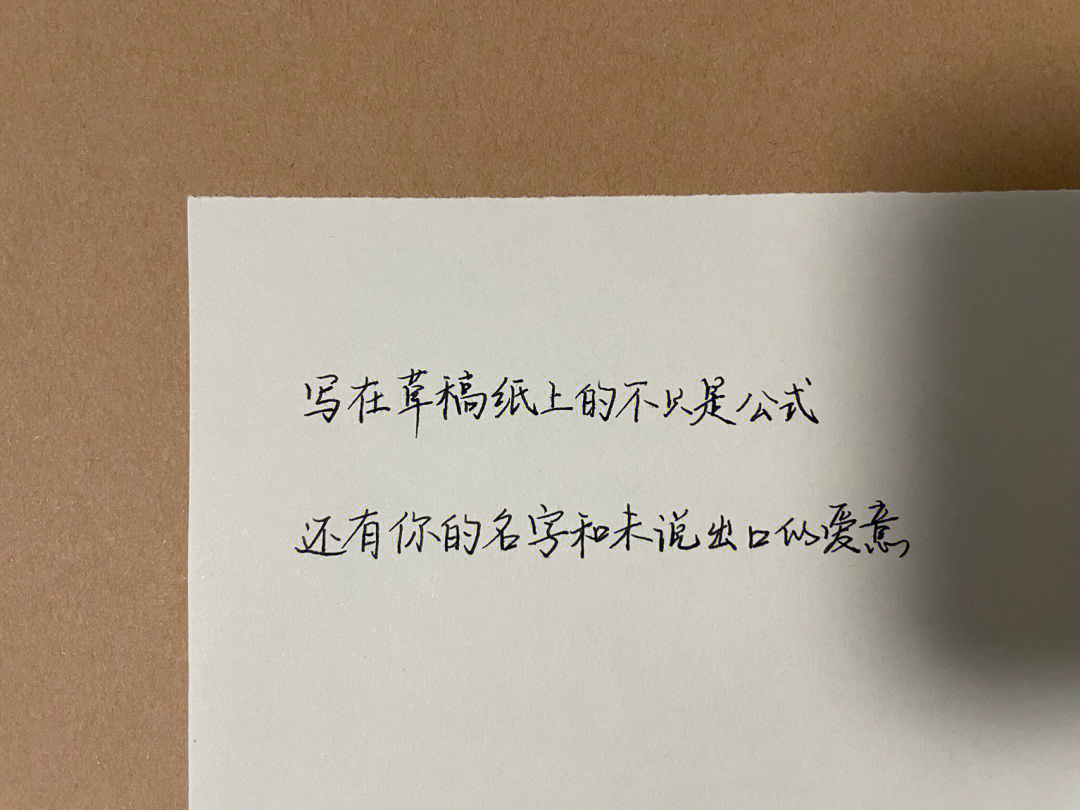 写在草稿纸上的不只是公式
还有你的名字和未说出口的爱意